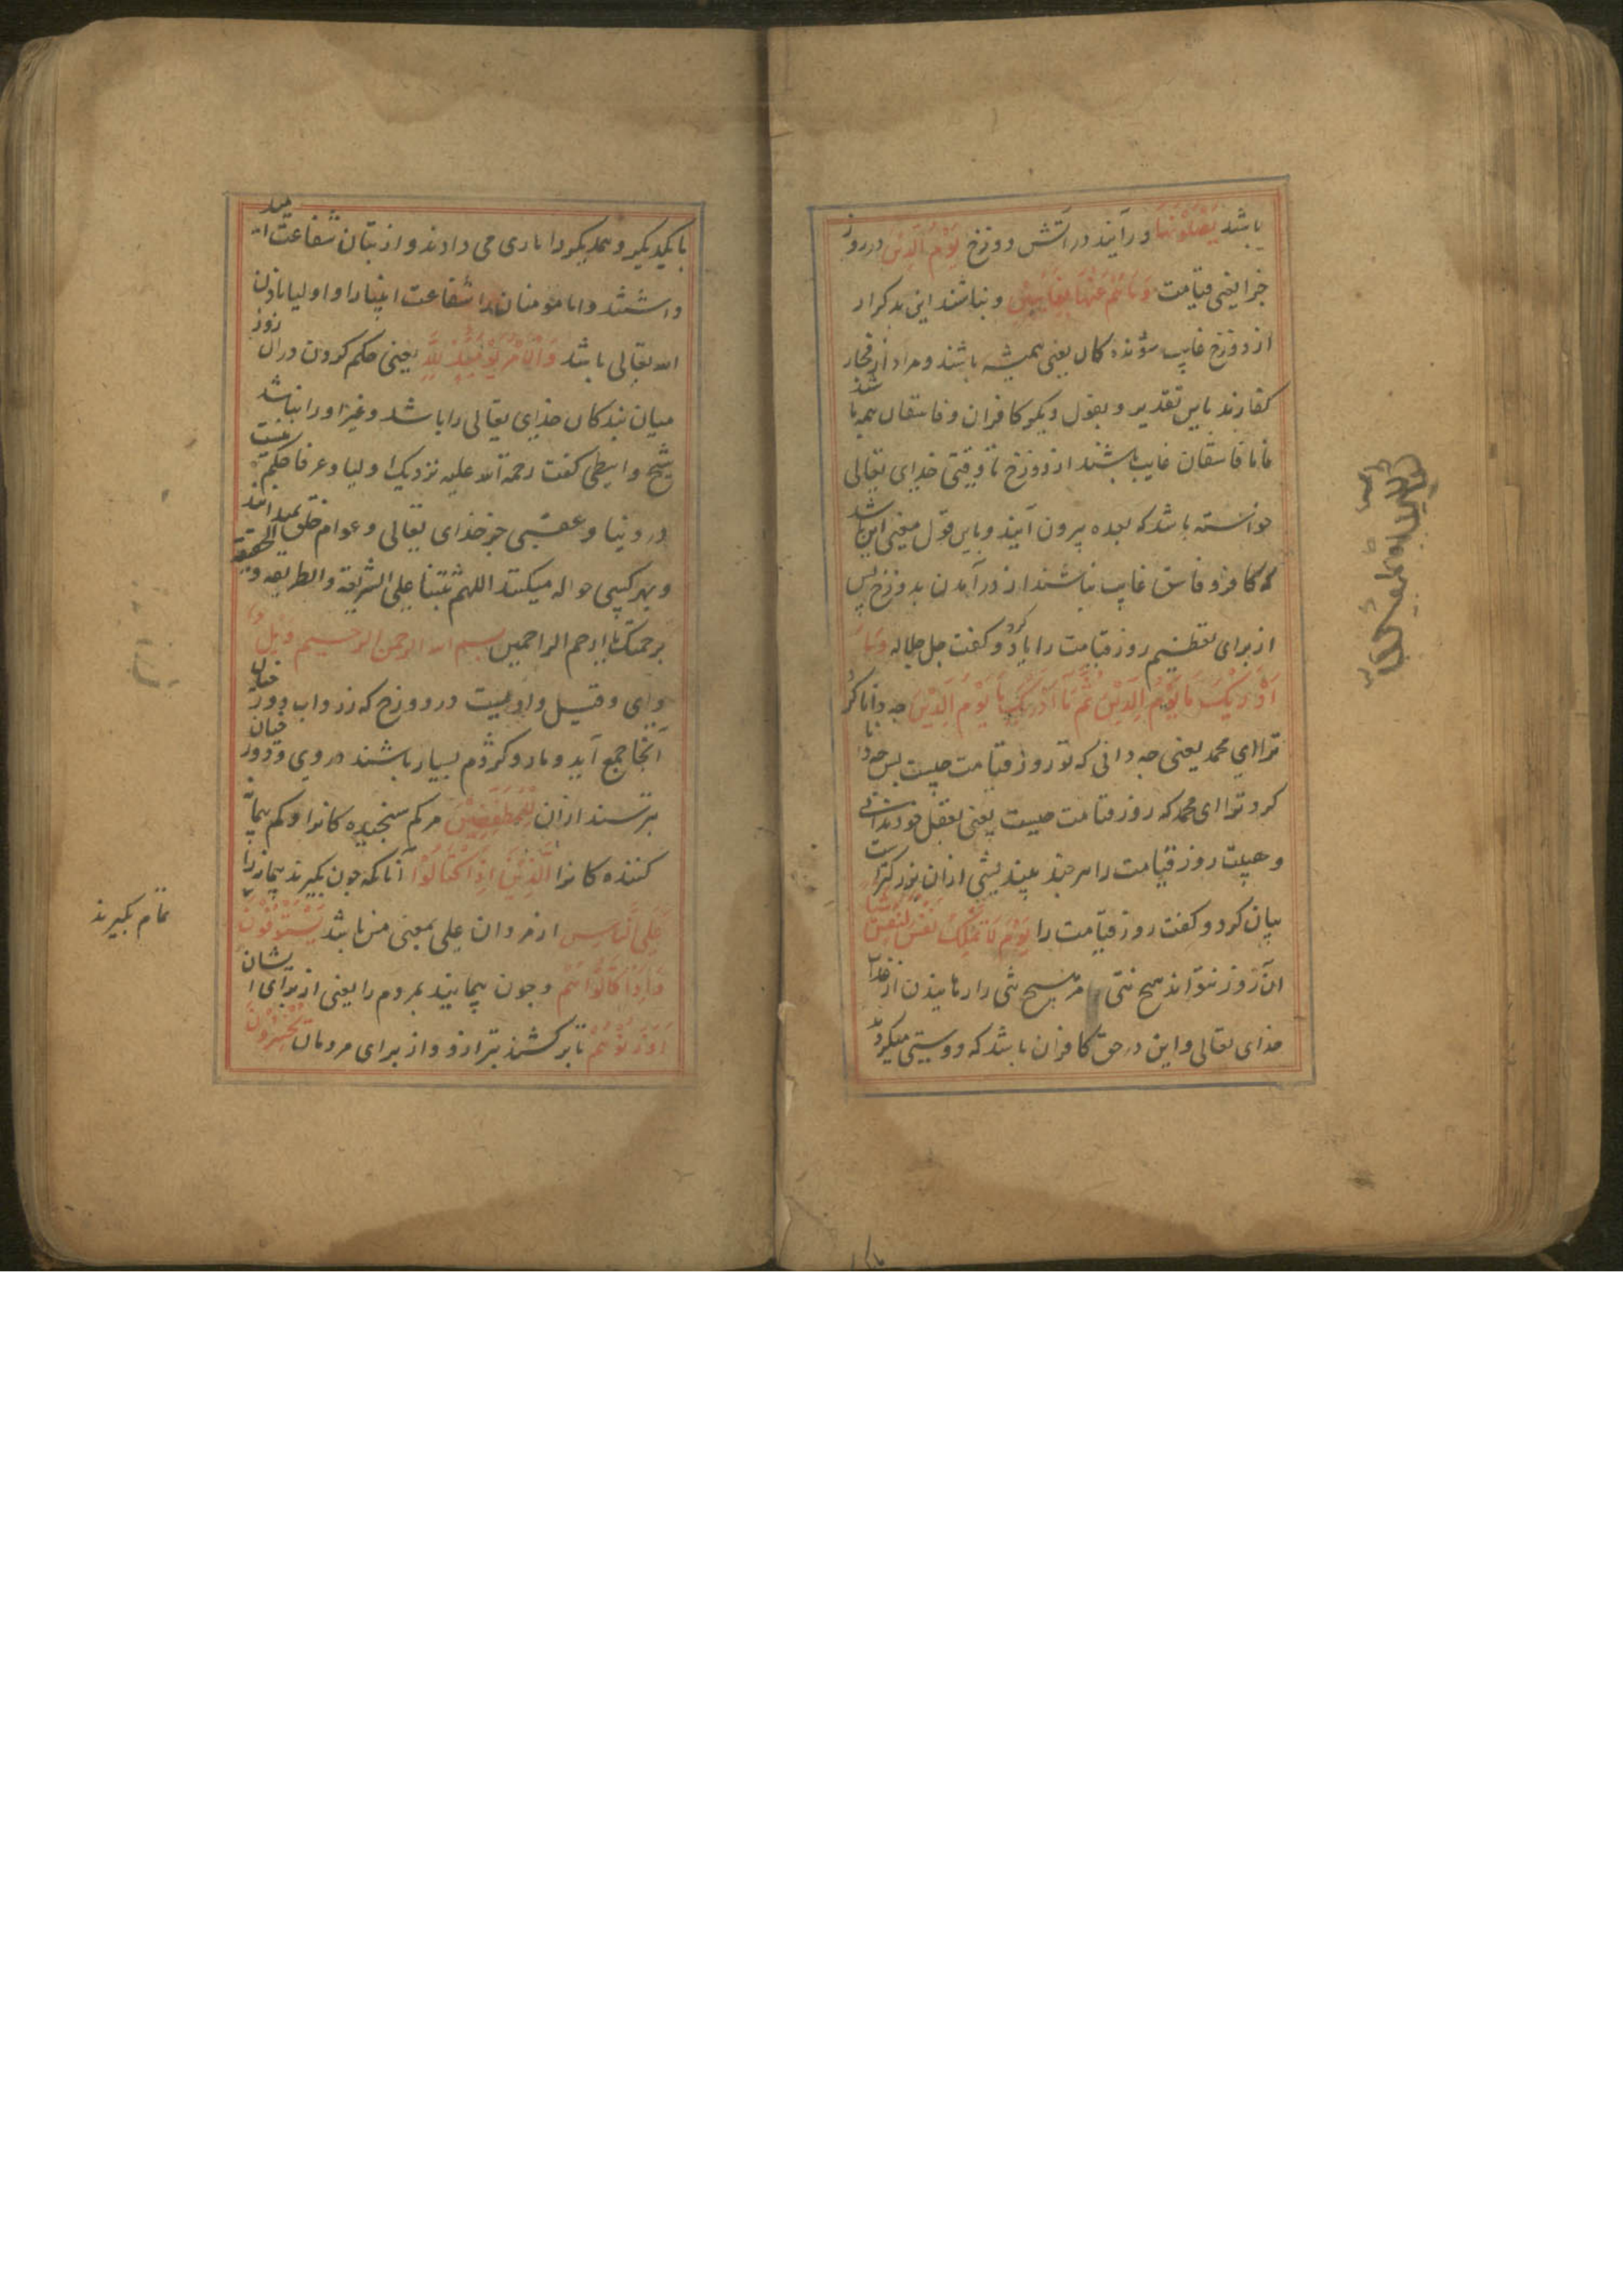 باشد يَصْلَوْنَهَا و درآیند در آتش دوزخ يَوْمَ الدِّينِ در روز
جزا یعنی قیامت وَمَا هُمْ عَنْهَا بِغَائِبِينَ و نباشند این بدکردار
از دوزخ غایب شونده کان یعنی همیشه باشند و مراد از فجار
کفارند باین تقدیر و بقول دیکر کافران و فاسقان همه باشند
فاما فاسقان غایب باشند از دوزخ تا وقتی خدای تعالی
خواسته باشد که بعده بیرون آیند و باین قول معنی این باشد
که کافر و فاسق غایب نباشند از درآمدن بدوزخ پس
از برای تعظیم روز قیامت را یاد کرد و کفت جل جلاله وَمَا
أَدْرَيكَ مَا يَوْمُ الدِّينِ ثُمَّ مَا أَدْرَيكَ مَا يَوْمُ الدِّينِ چه دانا کرد
ترا ای محمد یعنی چه دانی که تو روز قیامت چیست پس چه دانا
کرد ترا ای محمد که روز قیامت چیست یعنی بعقل خود ندانی
و هیبت روز قیامت را هر چند بیندیشی از ان بزرکتر است
بیان کرد و کفت روز قیامت را يَوْمَ لَا تَمْلِكُ نَفْسٌ لِنَفْسٍ شَيْئًا
آن روز نتواند هیچ تنی مر هیچ تنی را رهانیدن از عذاب
خدای تعالی و این در حق کافران باشد که دوستی میکردند
با یکدیکر و یکدیکر را یاری می دادند و از بتان شفاعت امید
داشتند و اما مومنان را شفاعت انبیا را و اولیا باذن
الله تعالی باشد وَالْأَمْرُ يَوْمَئِذٍ لِلَّهِ یعنی حکم کردن دران روز
میان بندکان خدای تعالی را باشد و غیر او را نباشد
شیخ واسطی کفت رحمة الله علیه نزدیک اولیا و عرفا حکم نیست
در دنیا و عقبی جز خدای تعالی و عوام خلق نمیدانند
و بهر کسی حواله میکنند اللهم ثبتنا علی الشریعة والطریقة والحقیقة
برحمتک یا ارحم الراحمین بسم الله الرحمن الرحیم وَيْلٌ
وای و قیل وادییست در دوزخ که زرداب دوزخیان
آنجا جمع آید و مار و کژدم بسیار باشند در وی و دوزخیان
بترسند ازان لِلْمُطَفِّفِينَ مر کم سنجیده کانرا و کم پیمانه
کننده کانرا الَّذِينَ إِذَا اكْتَالُوا آنانکه چون بکیرند پیمانه را
عَلَى النَّاسِ از مردان علی بمعنی من باشد يَسْتَوْفُونَ
تمام بکیرند
وَإِذَا كَالُوهُمْ و چون پیمانید بمردم را یعنی از برای ایشان
أَوْ وَزَنُوهُمْ یا برکشند بترازو از برای مردمان يُخْسِرُونَ